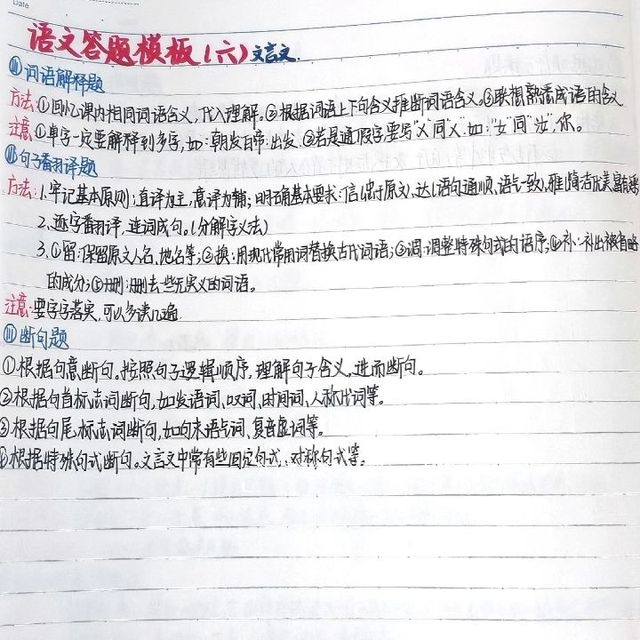 Date
语文答题模板(六)文言文.
(Ⅰ)词语解释题
方法:①回忆课内相同词语含义,代入理解。②根据词语上下句含义推断词语含义。③联想熟悉成语的含义
注意:①单字一定要解释到多字,如:朝发白帝:出发。②若是通假字要写"X"同"X",如:"女"同"汝",你。
(Ⅱ)句子翻译题
方法:1.牢记基本原则:直译为主,意译为辅;明确基本要求:信(忠于原文),达(语句通顺,语气一致),雅
2.逐字翻译,连词成句。(分解字义法)
3.①留:保留原文人名,地名等;②换:用现代常用词替换古代词语;③调:调整特殊句式的语序;④补:补出被省略
的成分;⑤删:删去些无实义的词语。
注意:要字字落实,可以多读几遍
(Ⅲ)断句题
①根据句意断句。按照句子逻辑顺序,理解句子含义,进而断句。
②根据句首标志词断句,如发语词、叹词、时间词、人称代词等。
③根据句尾标志词断句,如句末语气词、复音虚词等。
④根据特殊句式断句。文言文中常有些固定句式、对称句式等。